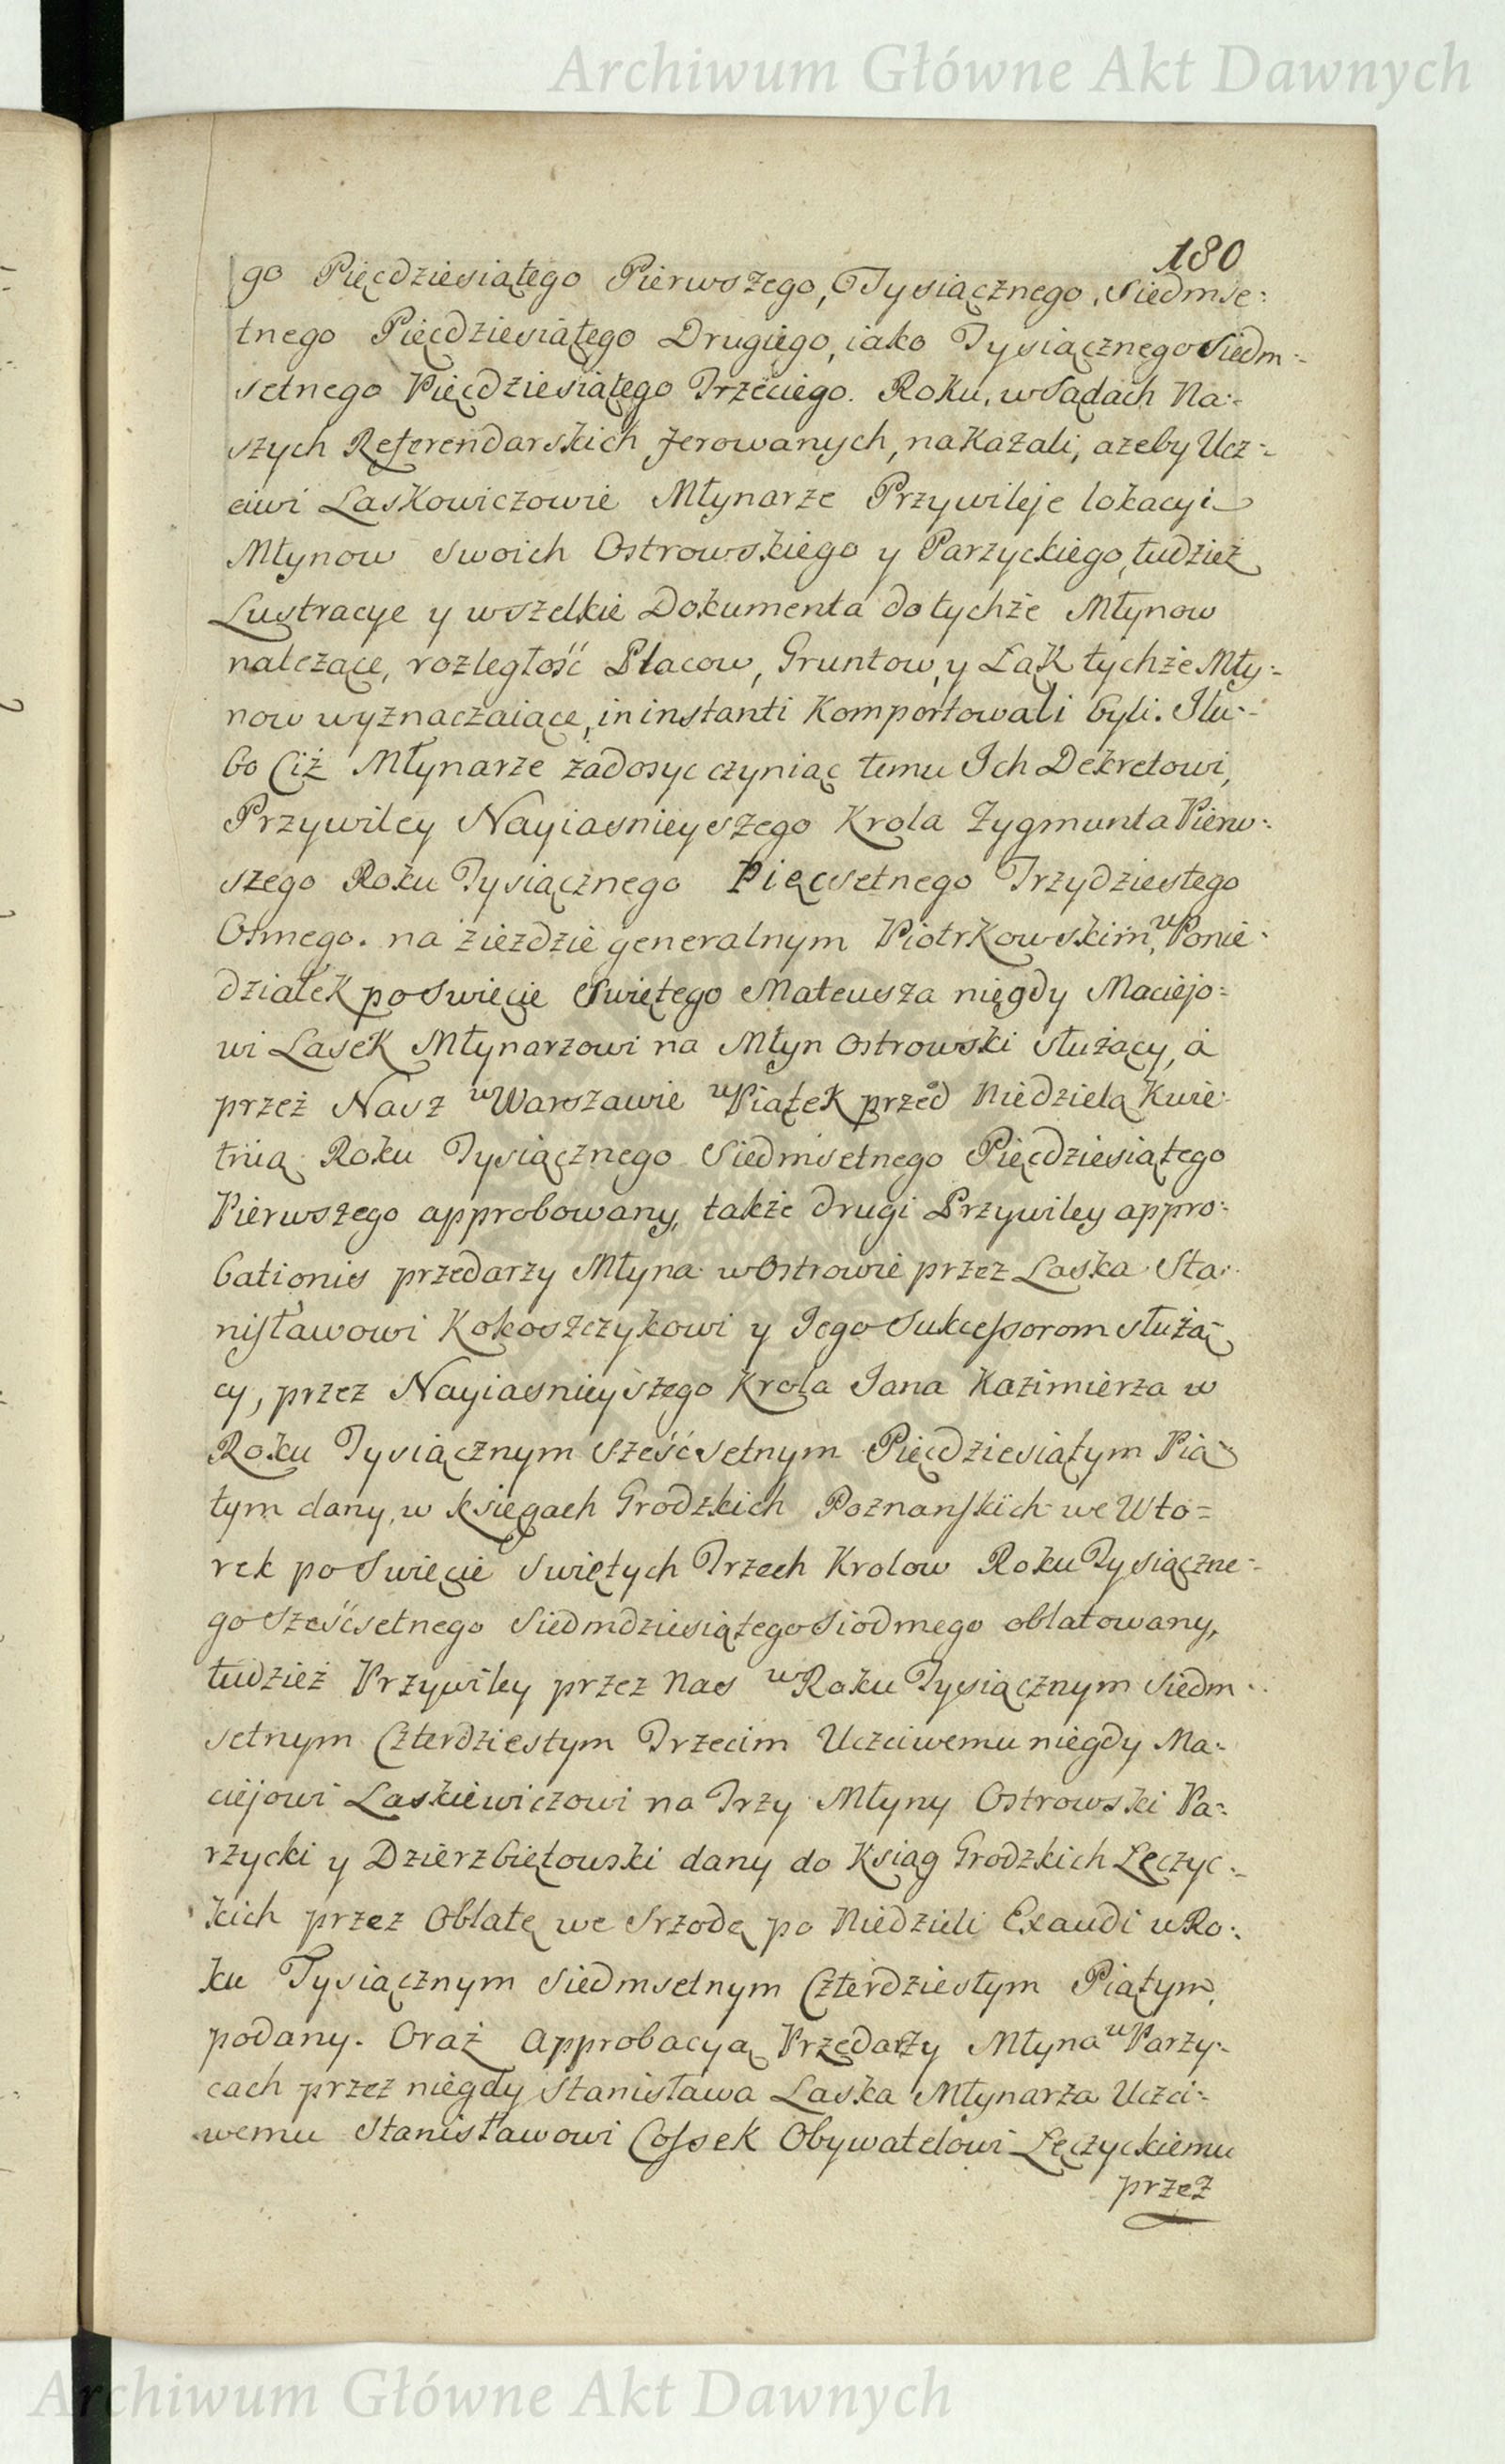 Archiwum Główne Akt Dawnych
180
go Pięcdziesiątego Pierwszego, Tysiącznego, Siedmse:
tnego Pięcdziesiątego Drugiego, iako Tysiącznego Siedm:
setnego Pięcdziesiątego Trzeciego. Roku, w Sądach Na:
szych Referendarskich ferowanych, nakazali, azeby Ucz:
ciwi Laskowiczowie Młynarze Przywileje lokacyi
Młynow swoich Ostrowskiego y Parzyckiego, tudziez
Lustracye y wszelkie Dokumenta do tychże Młynow
nalezące, rozległość Placow, Gruntow, y Łąk tychże Mły:
now wyznaczaiące, in instanti komportowali byli. Ilu:
bo Ciż Młynarze zadosyc czyniąc temu Ich Dekretowi,
Przywiley Nayiasnieyszego Krola Zygmunta Pierw:
szego Roku Tysiącznego Pięcsetnego Trzydziestego
Osmego. na zieżdzie generalnym Piotrkowskim, w Ponie:
działek po Swięcie Swiętego Mateusza niegdy Maciejo:
wi Lasek Młynarzowi na Młyn Ostrowski służący, a
przez Nasz w Warszawie w Piątek przed Niedzielą Kwie:
tnią Roku Tysiącznego Siedmsetnego Pięcdziesiątego
Pierwszego approbowany, także drugi Przywiley appro:
bationis przedarzy Młyna w Ostrowie przez Laska Sta:
nisławowi Kokoszczykowi y Jego Sukcessorom służą
cy, przez Nayiasnieyszego Krola Jana Kazimierza w
Roku Tysiącznym sześćsetnym Pięcdziesiątym Pią
tym dany, w Księgach Grodzkich Poznanskich we Wto=
rek po Swięcie Swiętych Trzech Krolow Roku Tysiączne:
go Sześćsetnego Siedmdziesiątego Siodmego oblatowany,
tudzież Przywiley przez Nas w Roku Tysiącznym Siedm:
setnym Czterdziestym Trzecim Uczciwemu niegdy Ma:
ciejowi Laskiewiczowi na Trzy Młyny Ostrowski Pa:
rzycki y Dzierzbiętowski dany do Ksiąg Grodzkich Łęczyc:
kich przez Oblatę we Srzodę po Niedzieli Exaudi w Ro:
ku Tysiącznym Siedmsetnym Czterdziestym Piątym,
podany. Oraz Approbacyą Przedarzy Młyna w Parzy:
cach przez niegdy Stanisława Laska Młynarza Uczci:
wemu Stanisławowi Cossek Obywatelowi Łęczyckiemu
przez
Archiwum Główne Akt Dawnych